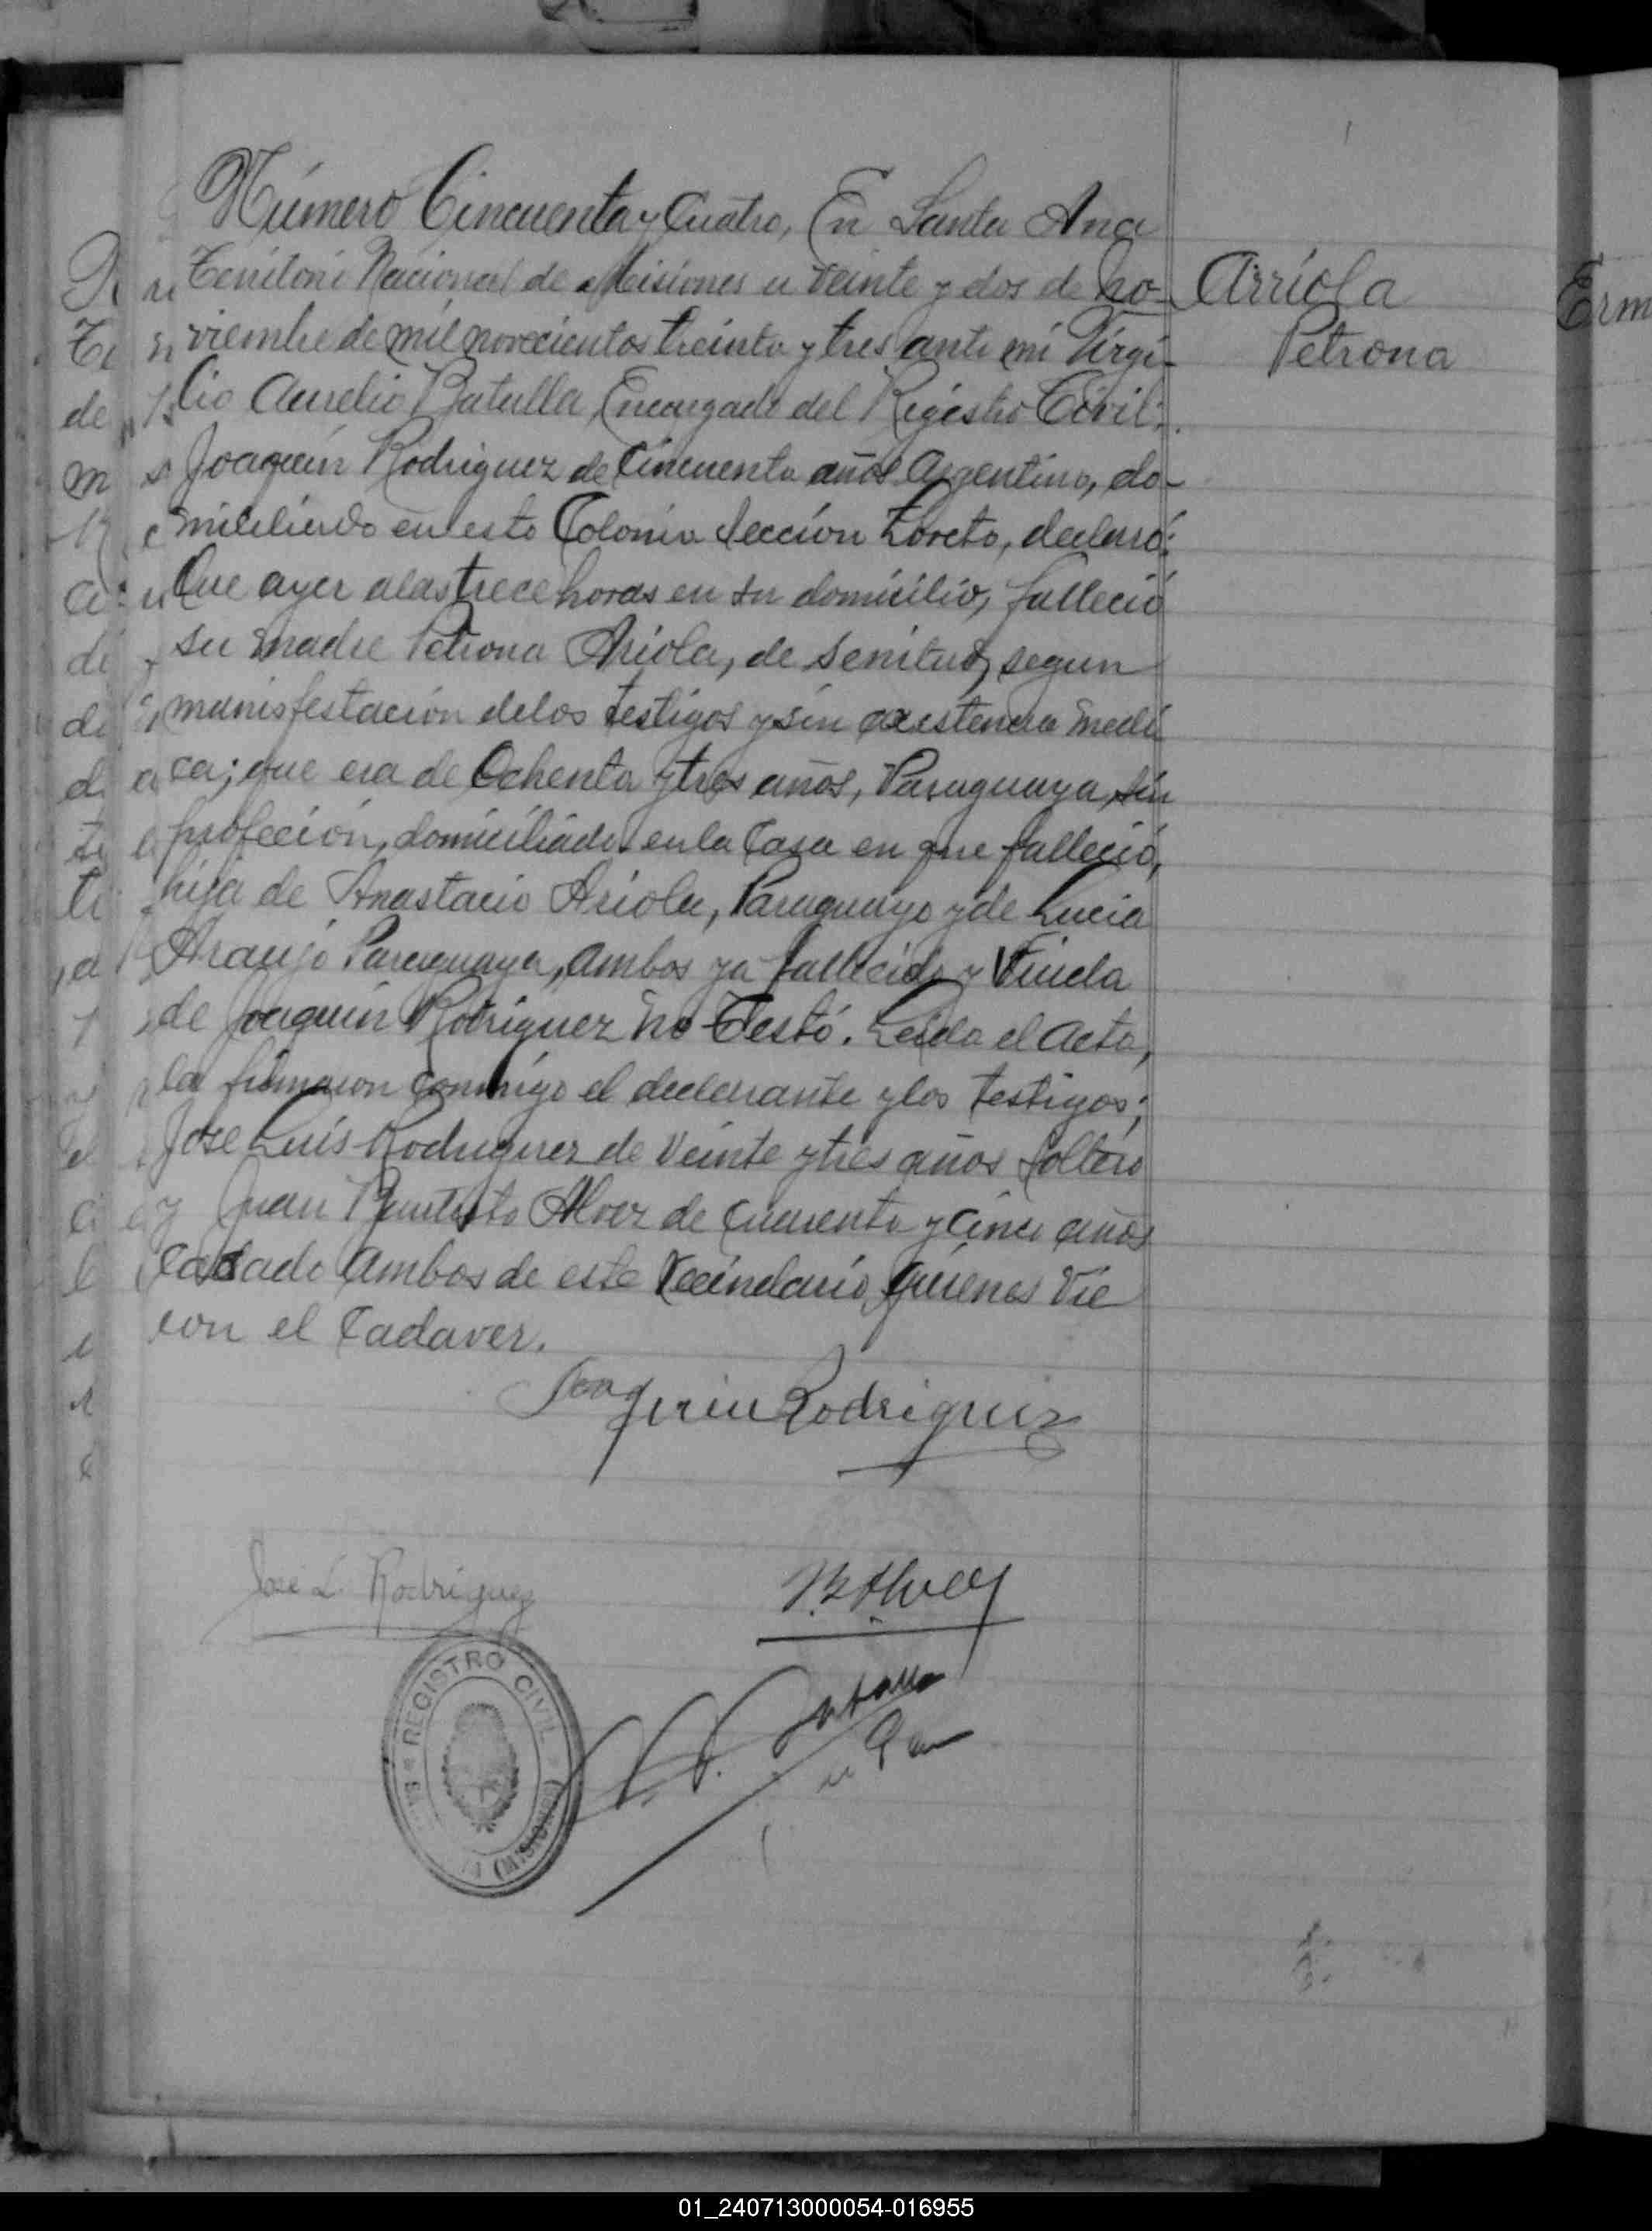 Número Cincuenta y Cuatro, En Santa Ana
Territorio Nacional de Misiones a veinte y dos de no-
viembre de mil novecientos treinta y tres ante mi Virgi-
lio Aurelio Batalla, Encargado del Registro Civil:
Joaquín Rodriguez de Cincuenta años Argentino, do-
miciliado en esta Colonia Sección Loreto, declaró:
Que ayer a las trece horas en su domicilio, falleció
su madre Petrona Ariola, de senitud, segun
manisfestación de los testigos y sin asistencia medi
ca; que era de Ochenta y tres años, Paraguaya, sin
profeción, domiciliada en la Casa en que falleció,
hija de Anastacio Ariola, Paraguayo y de Lucia
Araujo Paraguaya, ambos ya fallecido y Viuda
de Joaquín Rodriguez no Testó. Leida el Acta,
la firmaron conmigo el declarante y los testigos;
Jose Luis Rodriguez de Veinte y tres años Soltero
y Juan Bautista Alvez de Cuarenta y Cinco años
Casado Ambos de este Vecindario, quienes Vie
ron el Cadaver.
Arriola
Petrona
Joaquin Rodriguez
José L. Rodriguez
REGISTRO CIVIL
(MISIONES)
Erm
01_240713000054-016955